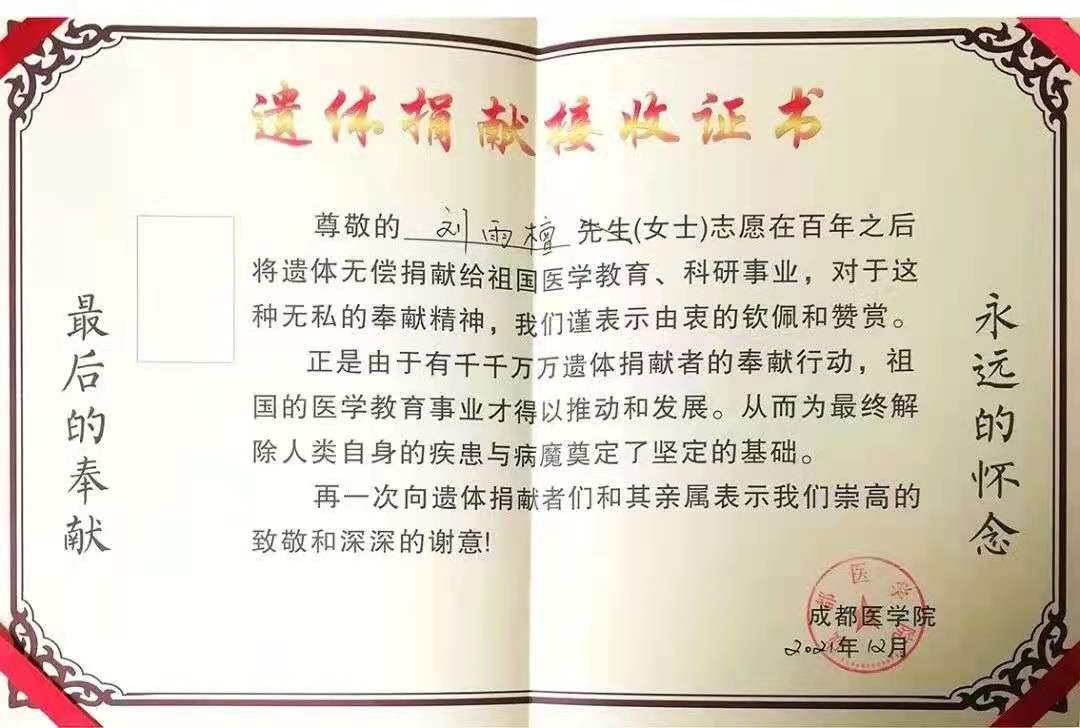 遗体捐献接收证书
尊敬的 刘雨檀 先生(女士)志愿在百年之后
将遗体无偿捐献给祖国医学教育、科研事业，对于这
种无私的奉献精神，我们谨表示由衷的钦佩和赞赏。
正是由于有千千万万遗体捐献者的奉献行动，祖
国的医学教育事业才得以推动和发展。从而为最终解
除人类自身的疾患与病魔奠定了坚定的基础。
再一次向遗体捐献者们和其亲属表示我们崇高的
致敬和深深的谢意!
最后的奉献
永远的怀念
成都医学院
2021年12月